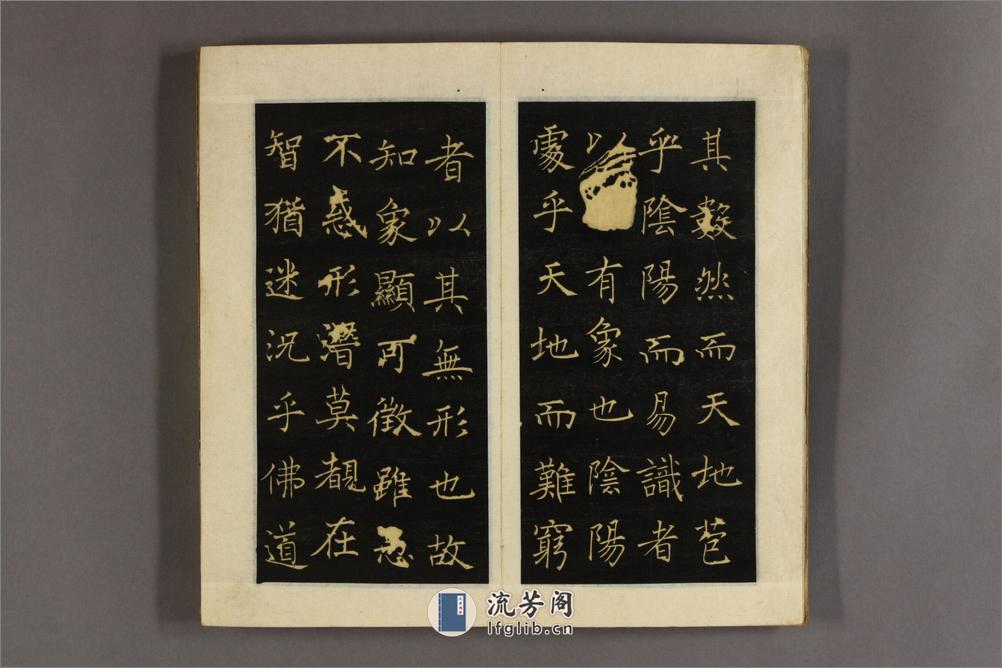 其數然而天地苞
乎陰陽而易識者
以有象也陰陽
處乎天地而難窮
者以其無形也故
知象顯可徵雖愚
不惑形潛莫覩在
智猶迷況乎佛道
流芳阁
lfglib.cn